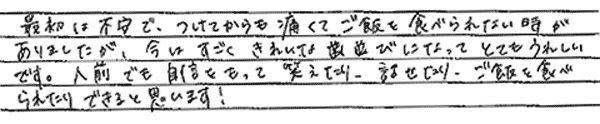 最初は不安で、つけてからも痛くてご飯を食べられない時が
ありましたが、今はすごくきれいな歯並びになってとてもうれしい
です。人前でも自信をもって笑えたり、話せたり、ご飯を食べ
られたりできると思います！